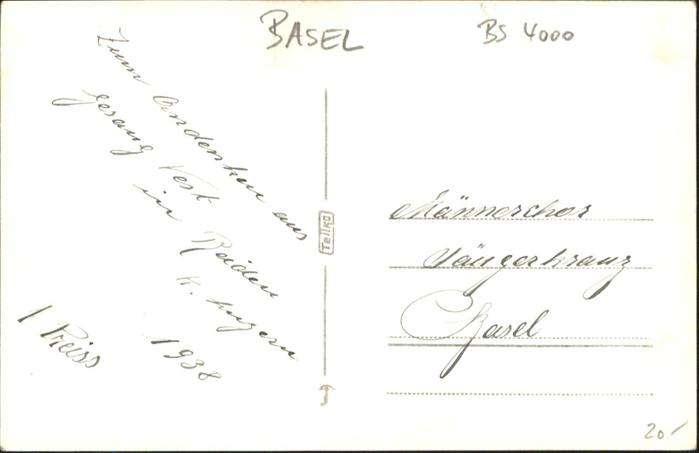 BASEL
BS 4000
Zum Andenken aus
gesang Fest
in Reiden
K. Luzern
1938
1 Preiss
Tellko
Männerchor
Sängerkranz
Basel
20.-